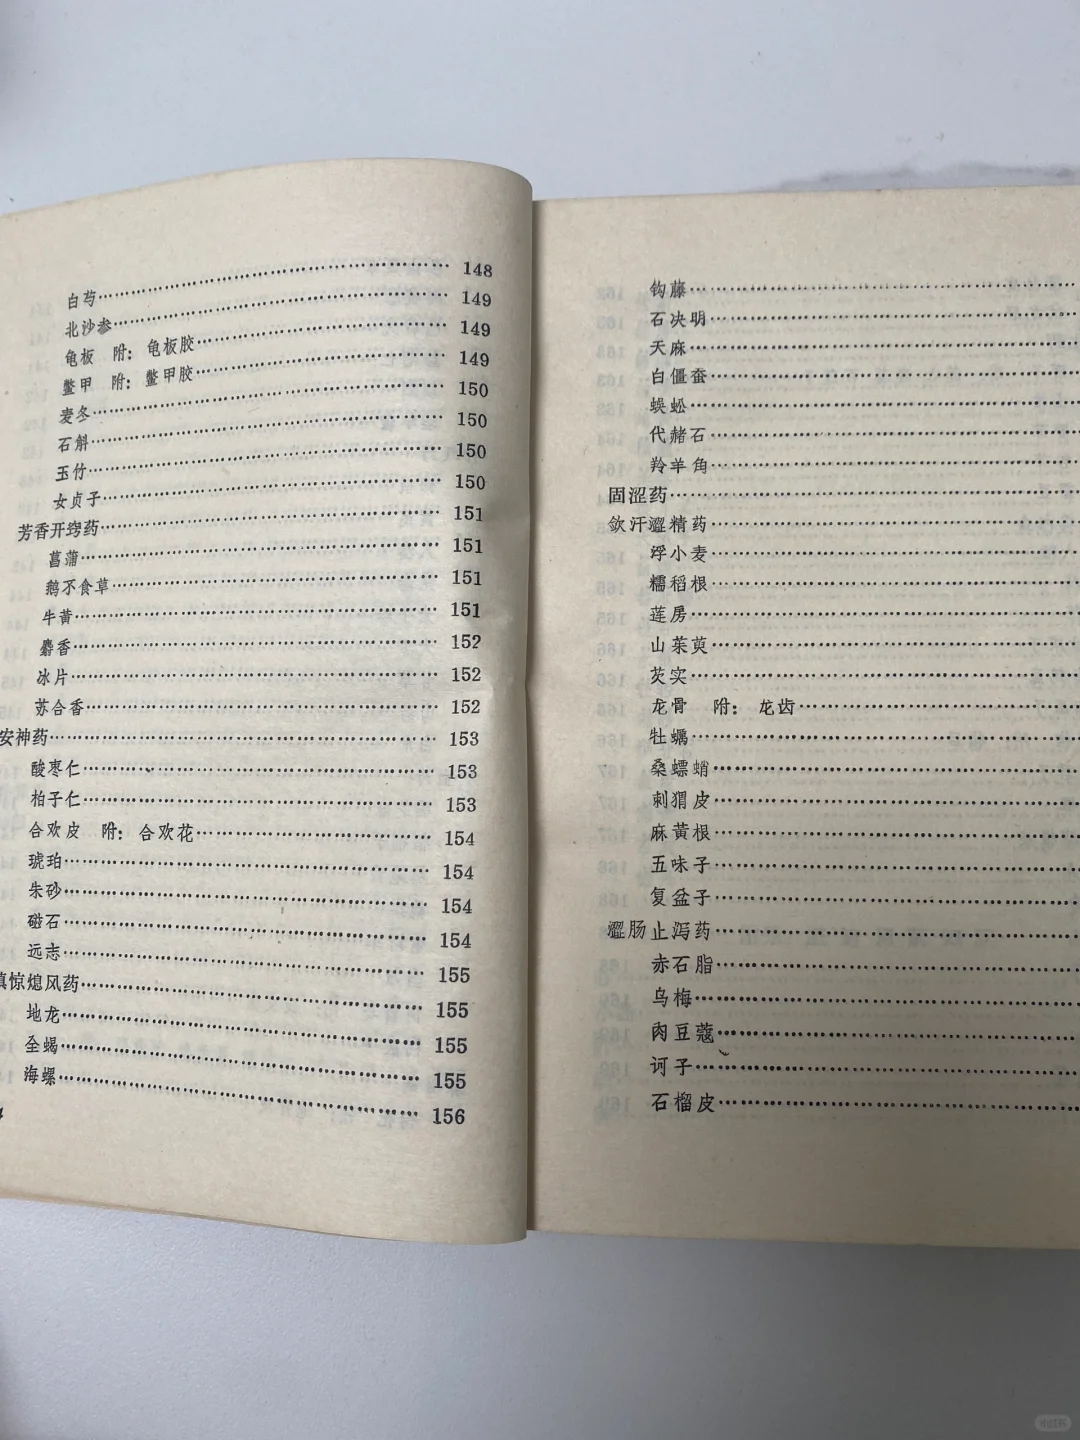 白芍……148
北沙参……149
龟板 附：龟板胶……149
鳖甲 附：鳖甲胶……149
麦冬……150
石斛……150
玉竹……150
女贞子……150
芳香开窍药……151
菖蒲……151
鹅不食草……151
牛黄……151
麝香……152
冰片……152
苏合香……152
安神药……153
酸枣仁……153
柏子仁……153
合欢皮 附：合欢花……154
琥珀……154
朱砂……154
磁石……154
远志……155
镇惊熄风药……155
地龙……155
全蝎……155
海螺……156
钩藤……
石决明……
天麻……
白僵蚕……
蜈蚣……
代赭石……
羚羊角……
固涩药……
敛汗澀精药……
浮小麦……
糯稻根……
莲房……
山茱萸……
芡实……
龙骨 附：龙齿……
牡蛎……
桑螵蛸……
刺猬皮……
麻黄根……
五味子……
复盆子……
澀肠止泻药……
赤石脂……
乌梅……
肉豆蔻……
诃子……
石榴皮……